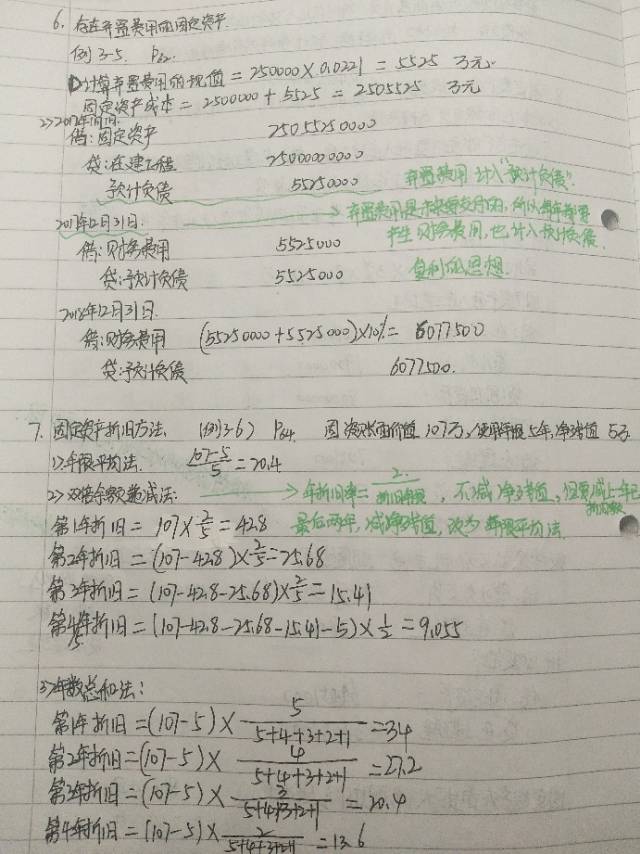 6. 存在弃置费用的固定资产.
例 3-5. P62.
1>计算弃置费用的现值 = 250000 × 0.0221 = 5525 万元.
固定资产成本 = 2500000 + 5525 = 2505525 万元
借: 固定资产 25055250000
贷: 在建工程 25000000000
预计负债 55250000 弃置费用 计入"预计负债".
2017年12月31日. 弃置费用是未来要支付的, 所以每年都要
借: 财务费用 5525000 产生财务费用, 也计入预计负债.
贷: 预计负债 5525000 复利的思想.
2018年12月31日.
借: 财务费用 (55250000 + 5525000)×10% = 6077500
贷: 预计负债 6077500.
7. 固定资产折旧方法. (例3-6) P64. 固资账面价值 107万, 使用年限 5年, 净残值 5万
1> 年限平均法. 107-5/5 = 20.4
2> 双倍余额递减法: 年折旧率 = 2/折旧年限, 不减净残值, 但要减上一年已折旧数
第1年折旧 = 107 × 2/5 = 42.8 最后两年, 减净残值, 改为年限平均法.
第2年折旧 = (107-42.8) × 2/5 = 25.68
第3年折旧 = (107-42.8-25.68) × 2/5 = 15.41
第4年折旧 = (107-42.8-25.68-15.41-5) × 1/2 = 9.055
5
3> 年数总和法:
第1年折旧 = (107-5) × 5/5+4+3+2+1 = 34
第2年折旧 = (107-5) × 4/5+4+3+2+1 = 27.2
第3年折旧 = (107-5) × 3/5+4+3+2+1 = 20.4
第4年折旧 = (107-5) × 2/5+4+3+2+1 = 13.6